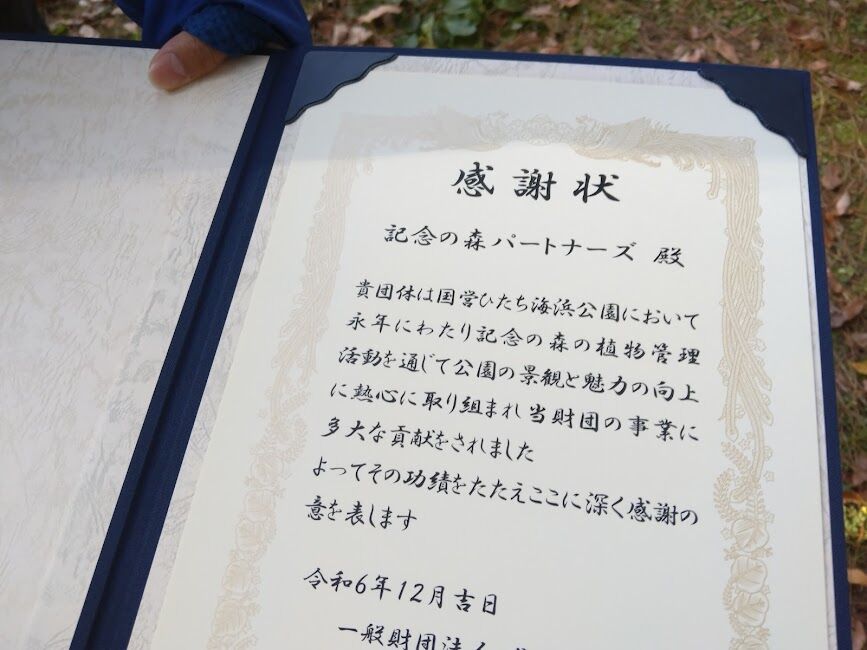 感謝状
記念の森パートナーズ 殿
貴団体は国営ひたち海浜公園において
永年にわたり記念の森の植物管理
活動を通じて公園の景観と魅力の向上
に熱心に取り組まれ当財団の事業に
多大な貢献をされました
よってその功績をたたえここに深く感謝の
意を表します
令和6年12月吉日
一般財団法人